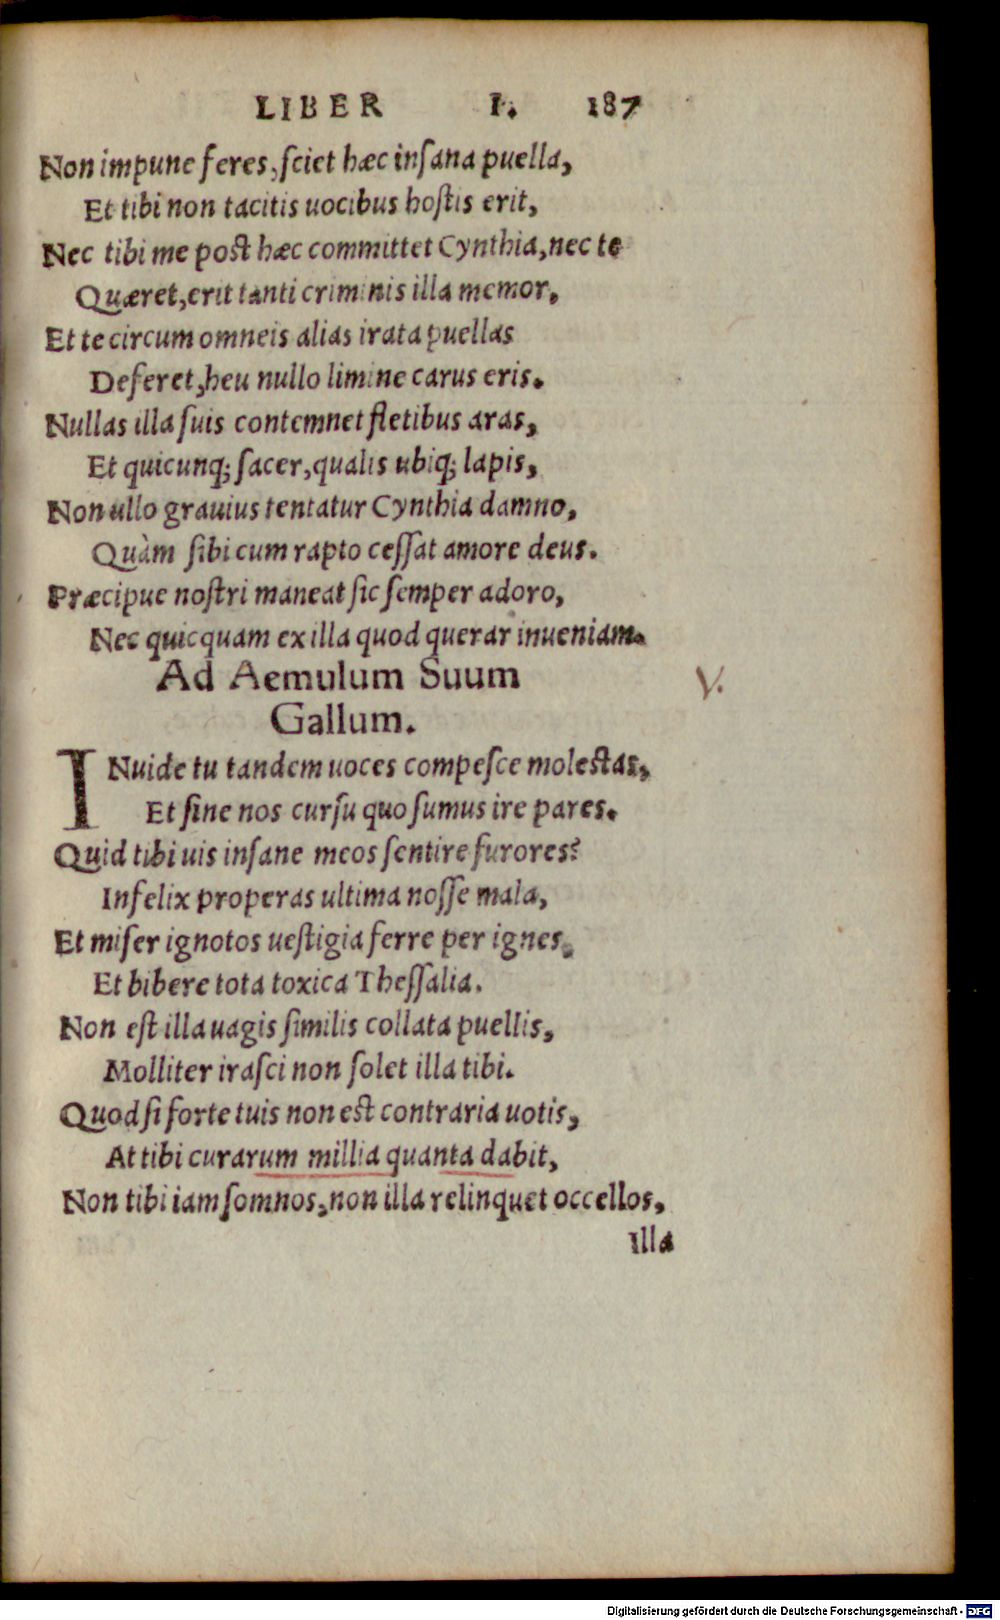 LIBER I. 187
Non impune feres, ſciet hæc inſana puella,
Et tibi non tacitis uocibus hoſtis erit,
Nec tibi me poſt hæc committet Cynthia, nec te
Quæret, erit tanti criminis illa memor.
Et te circum omneis alias irata puellas
Deferet, heu nullo limine carus eris.
Nullas illa ſuis contemnet fletibus aras,
Et quicunq; ſacer, qualis ubiq; lapis,
Non ullo grauius tentatur Cynthia damno,
Quàm ſibi cum rapto ceſſat amore deus.
Præcipue noſtri maneat ſic ſemper adoro,
Nec quicquam ex illa quod querar inueniam.
Ad Aemulum Suum
V.
Gallum.
INuide tu tandem uoces compeſce moleſtas,
Et ſine nos curſu quo ſumus ire pares.
Quid tibi uis inſane meos ſentire furores?
Infelix properas ultima noſſe mala,
Et miſer ignotos ueſtigia ferre per ignes,
Et bibere tota toxica Theſſalia.
Non eſt illa uagis ſimilis collata puellis,
Molliter iraſci non ſolet illa tibi.
Quod ſi forte tuis non eſt contraria uotis,
At tibi curarum millia quanta dabit,
Non tibi iam ſomnos, non illa relinquet occellos,
Illa
Digitalisierung gefördert durch die Deutsche Forschungsgemeinschaft - DFG